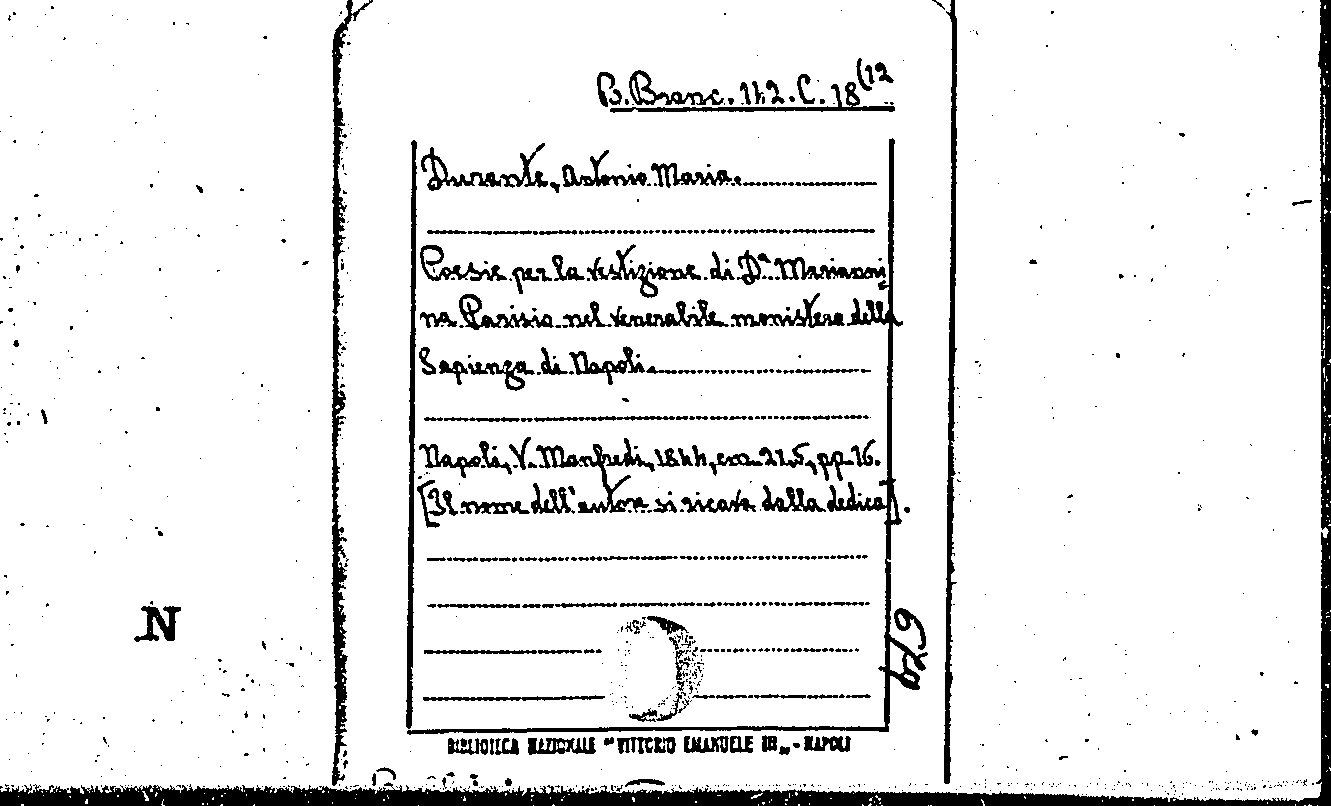 B. Branc. 112. C. 18 (12
Durante, Antonio Maria.
Poesie per la vestizione di Dª Marianni=
na Parisio nel venerabile monistero della
Sapienza di Napoli.
Napoli, V. Manfredi, 1844, cm. 21,5, pp. 16.
[Il nome dell'autore si ricava dalla dedica].
N
BIBLIOTECA NAZIONALE "VITTORIO EMANUELE III" - NAPOLI